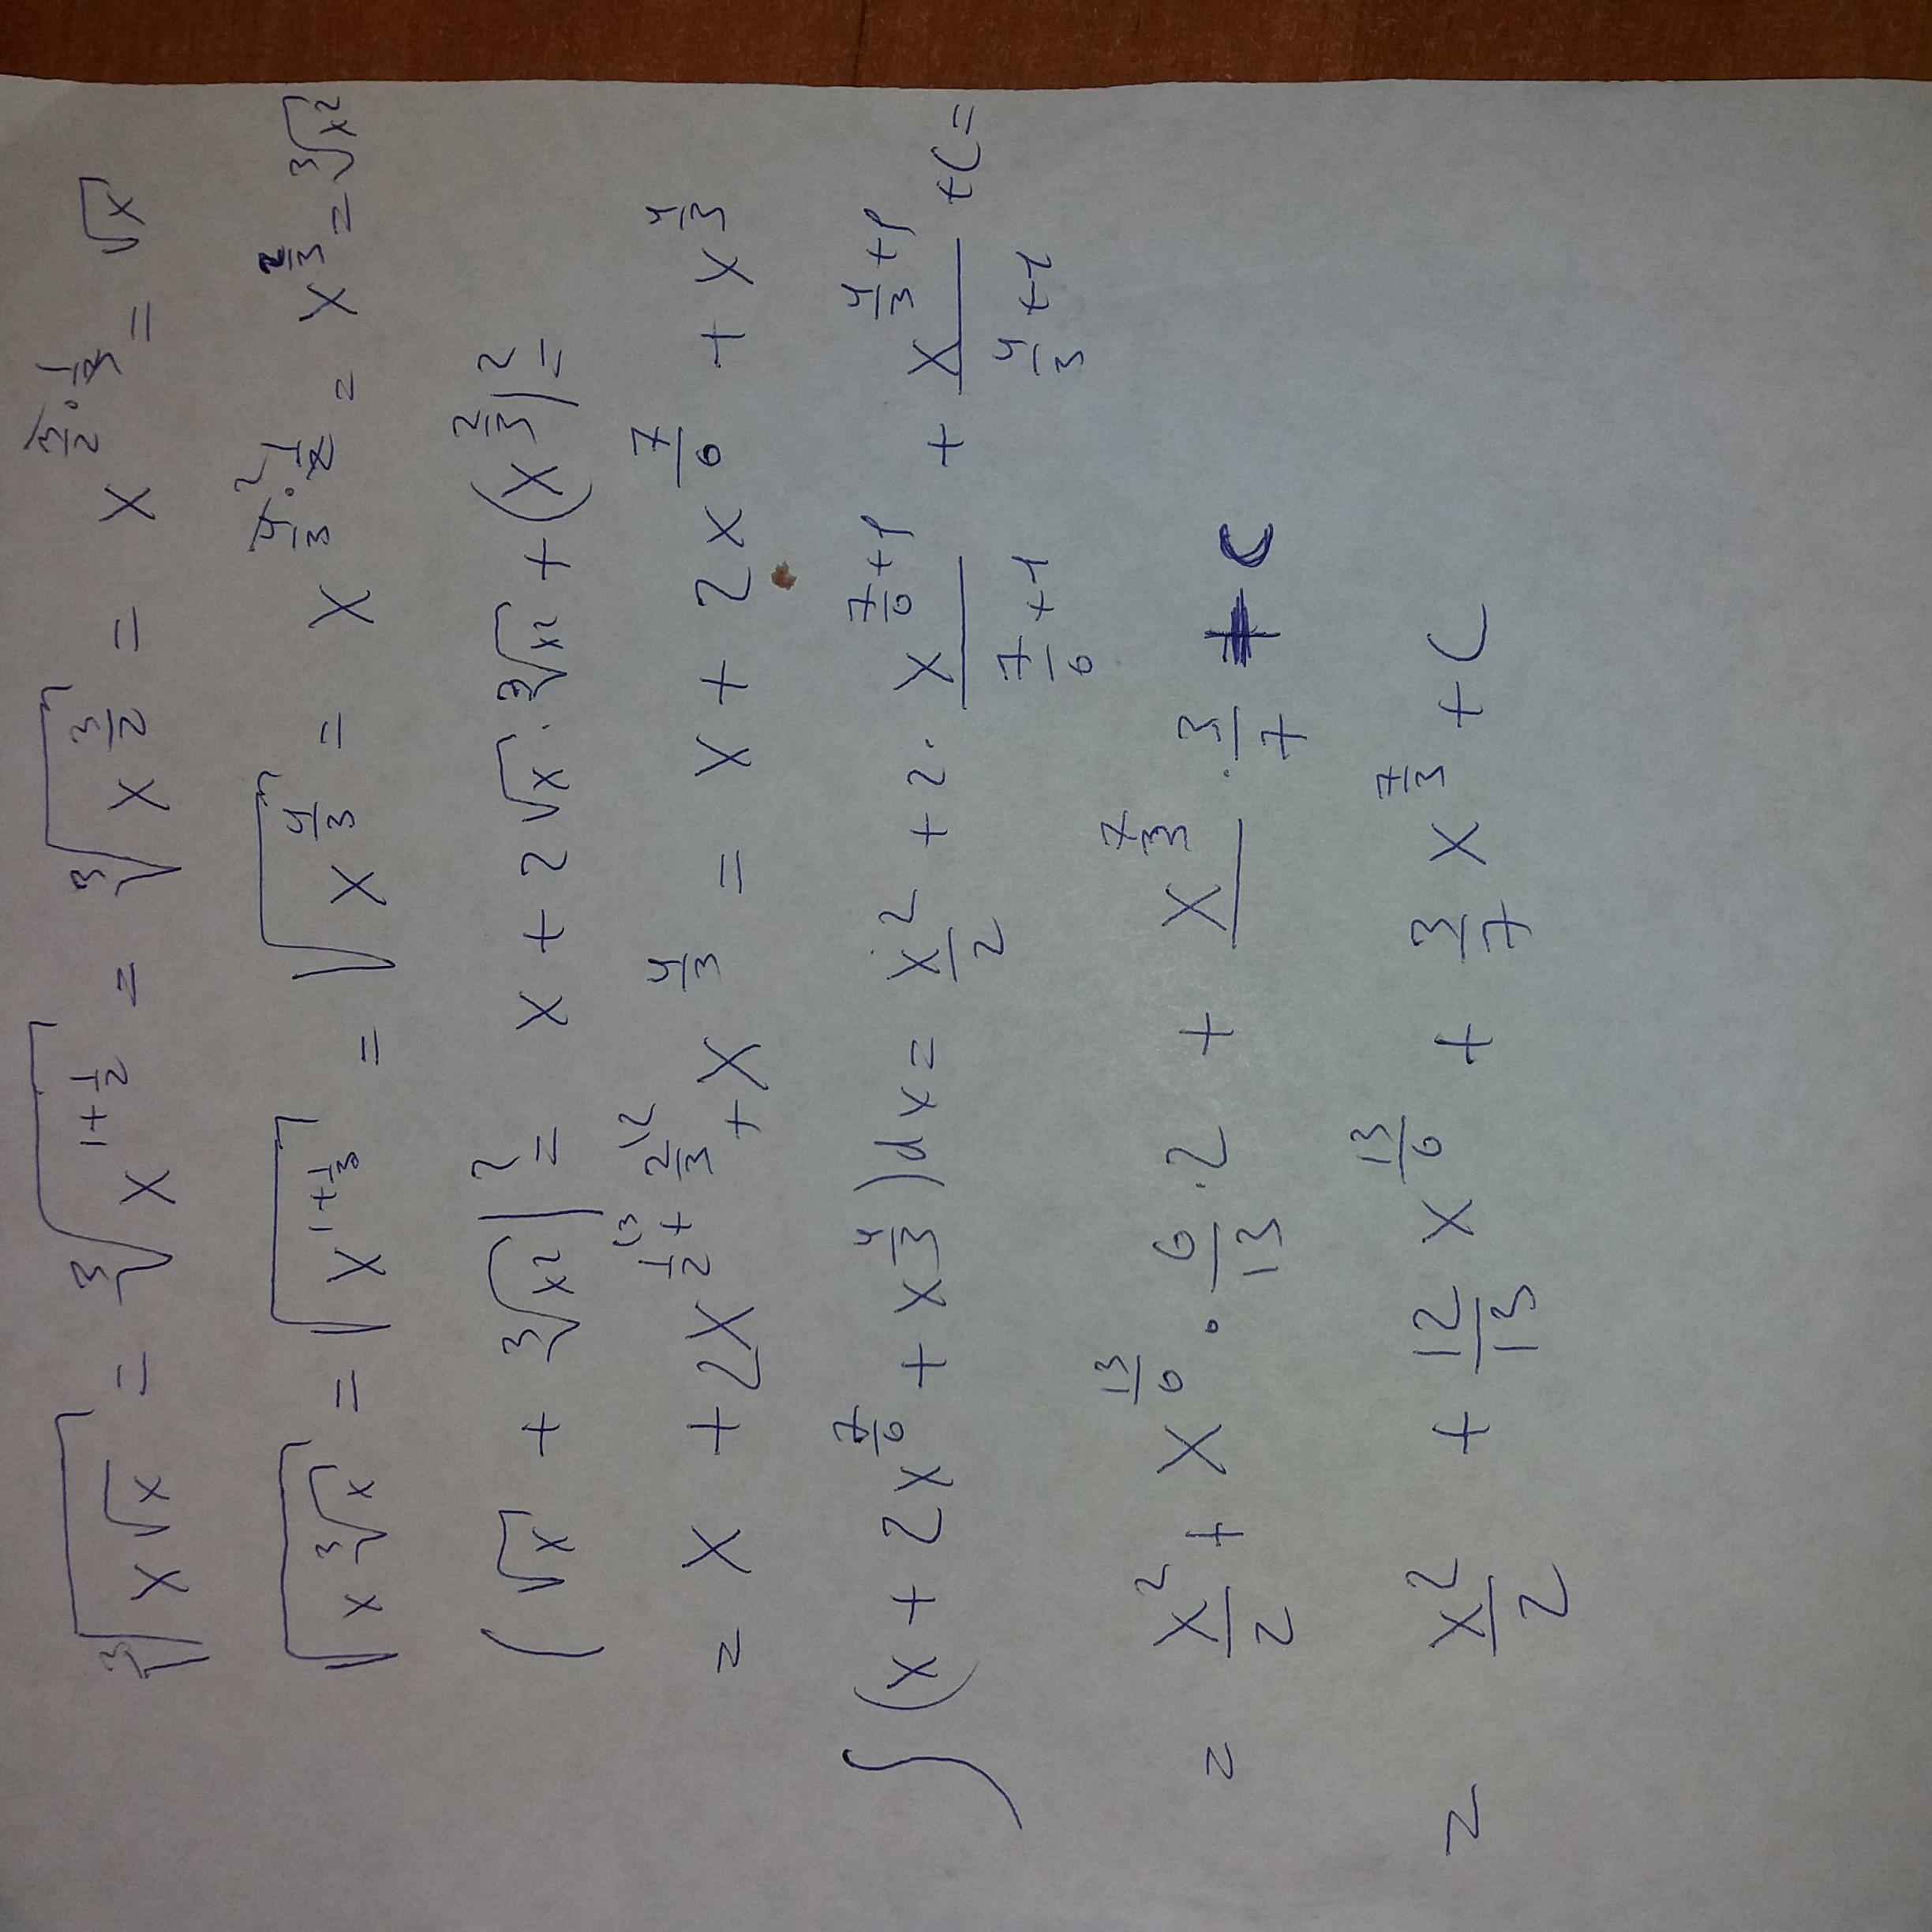 ∛(x√x) = ∛(x^(1+1/2)) = ∛(x^(3/2)) = x^(3/2·1/3) = √x
√(x∛x) = √(x^(1+1/3)) = √(x^(4/3)) = x^(4/3·1/2) = x^(2/3) = ∛(x²)
(√x + ∛(x²))² = x + 2√x·∛(x²) + (x^(2/3))² =
= x + 2x^(1/2+2/3) + x^(4/3) = x + 2x^(7/6) + x^(4/3)
∫(x + 2x^(7/6) + x^(4/3))dx = x²/2 + 2·x^(7/6+1)/(7/6+1) + x^(4/3+1)/(4/3+1) + C =
= x²/2 + x^(13/6)·6/13·2 + x^(7/3)·3/7 + C
= x²/2 + 12/13 x^(13/6) + 3/7 x^(7/3) + C